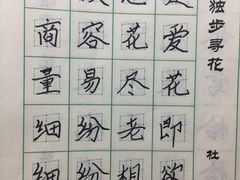 独步寻花
杜
爱花即欲
花尽老相
容易纷纷
商量细细